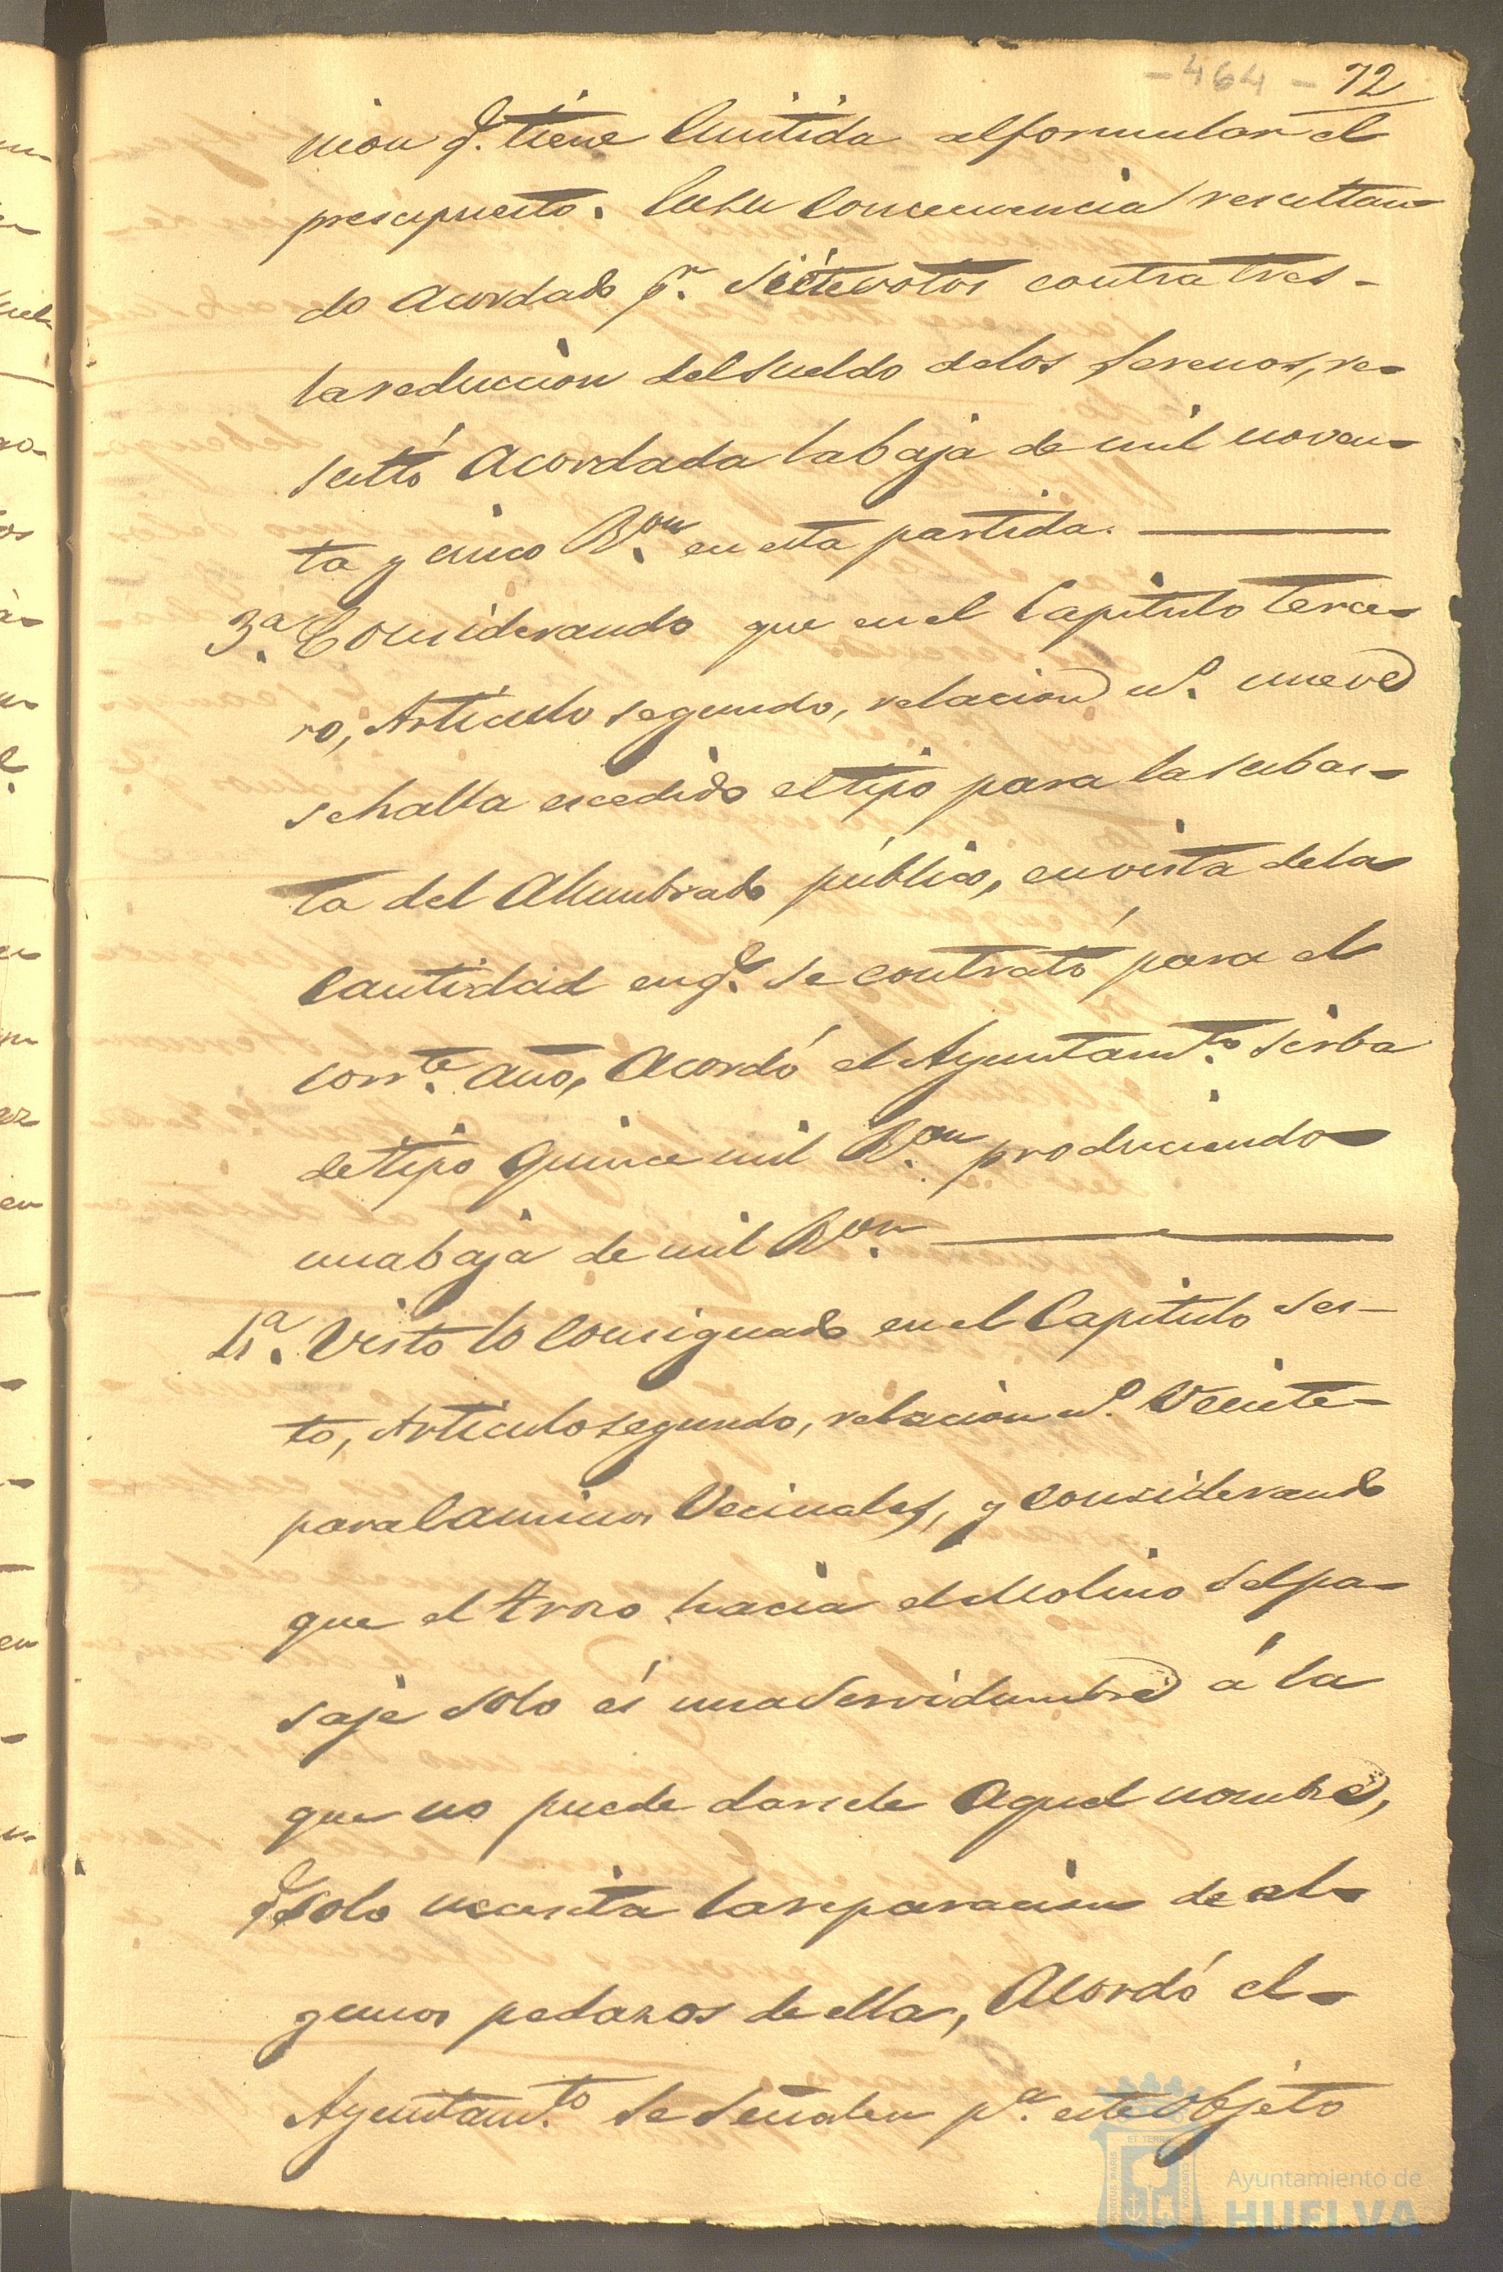 - 464 - 72
nion q.e tiene emitida al formular el
presupuesto. En su consecuencia resultan-
do acordado p.r siete votos contra tres -
la reduccion del sueldo de los Serenos, re-
sultó acordada la baja de mil noven-
ta y cinco R.on en esta partida.
3.a Considerando que en el Capitulo terce-
ro, Articulo segundo, relacion n.o nueve
se halla escedido el tipo para la subas-
ta del Alumbrado público, en vista de la
Cantidad en q.e se contrató para el
corr.te año, Acordó el Ayuntam.to sirba
de tipo quince mil R.on produciendo
una baja de mil R.on
4.a Visto lo consignado en el Capitulo Ses-
to, Articulo segundo, relacion n.o Veinte-
para Caminos Vecinales, y considerando
que el trozo hacia el Molino del pa-
saje solo és una servidumbre á la
que no puede darsele aquel nombre,
q.e solo necesita la reparacion de al-
gunos pedazos de ella, Acordó el -
Ayuntam.to se señalen p.a este objeto
Ayuntamiento de
HUELVA